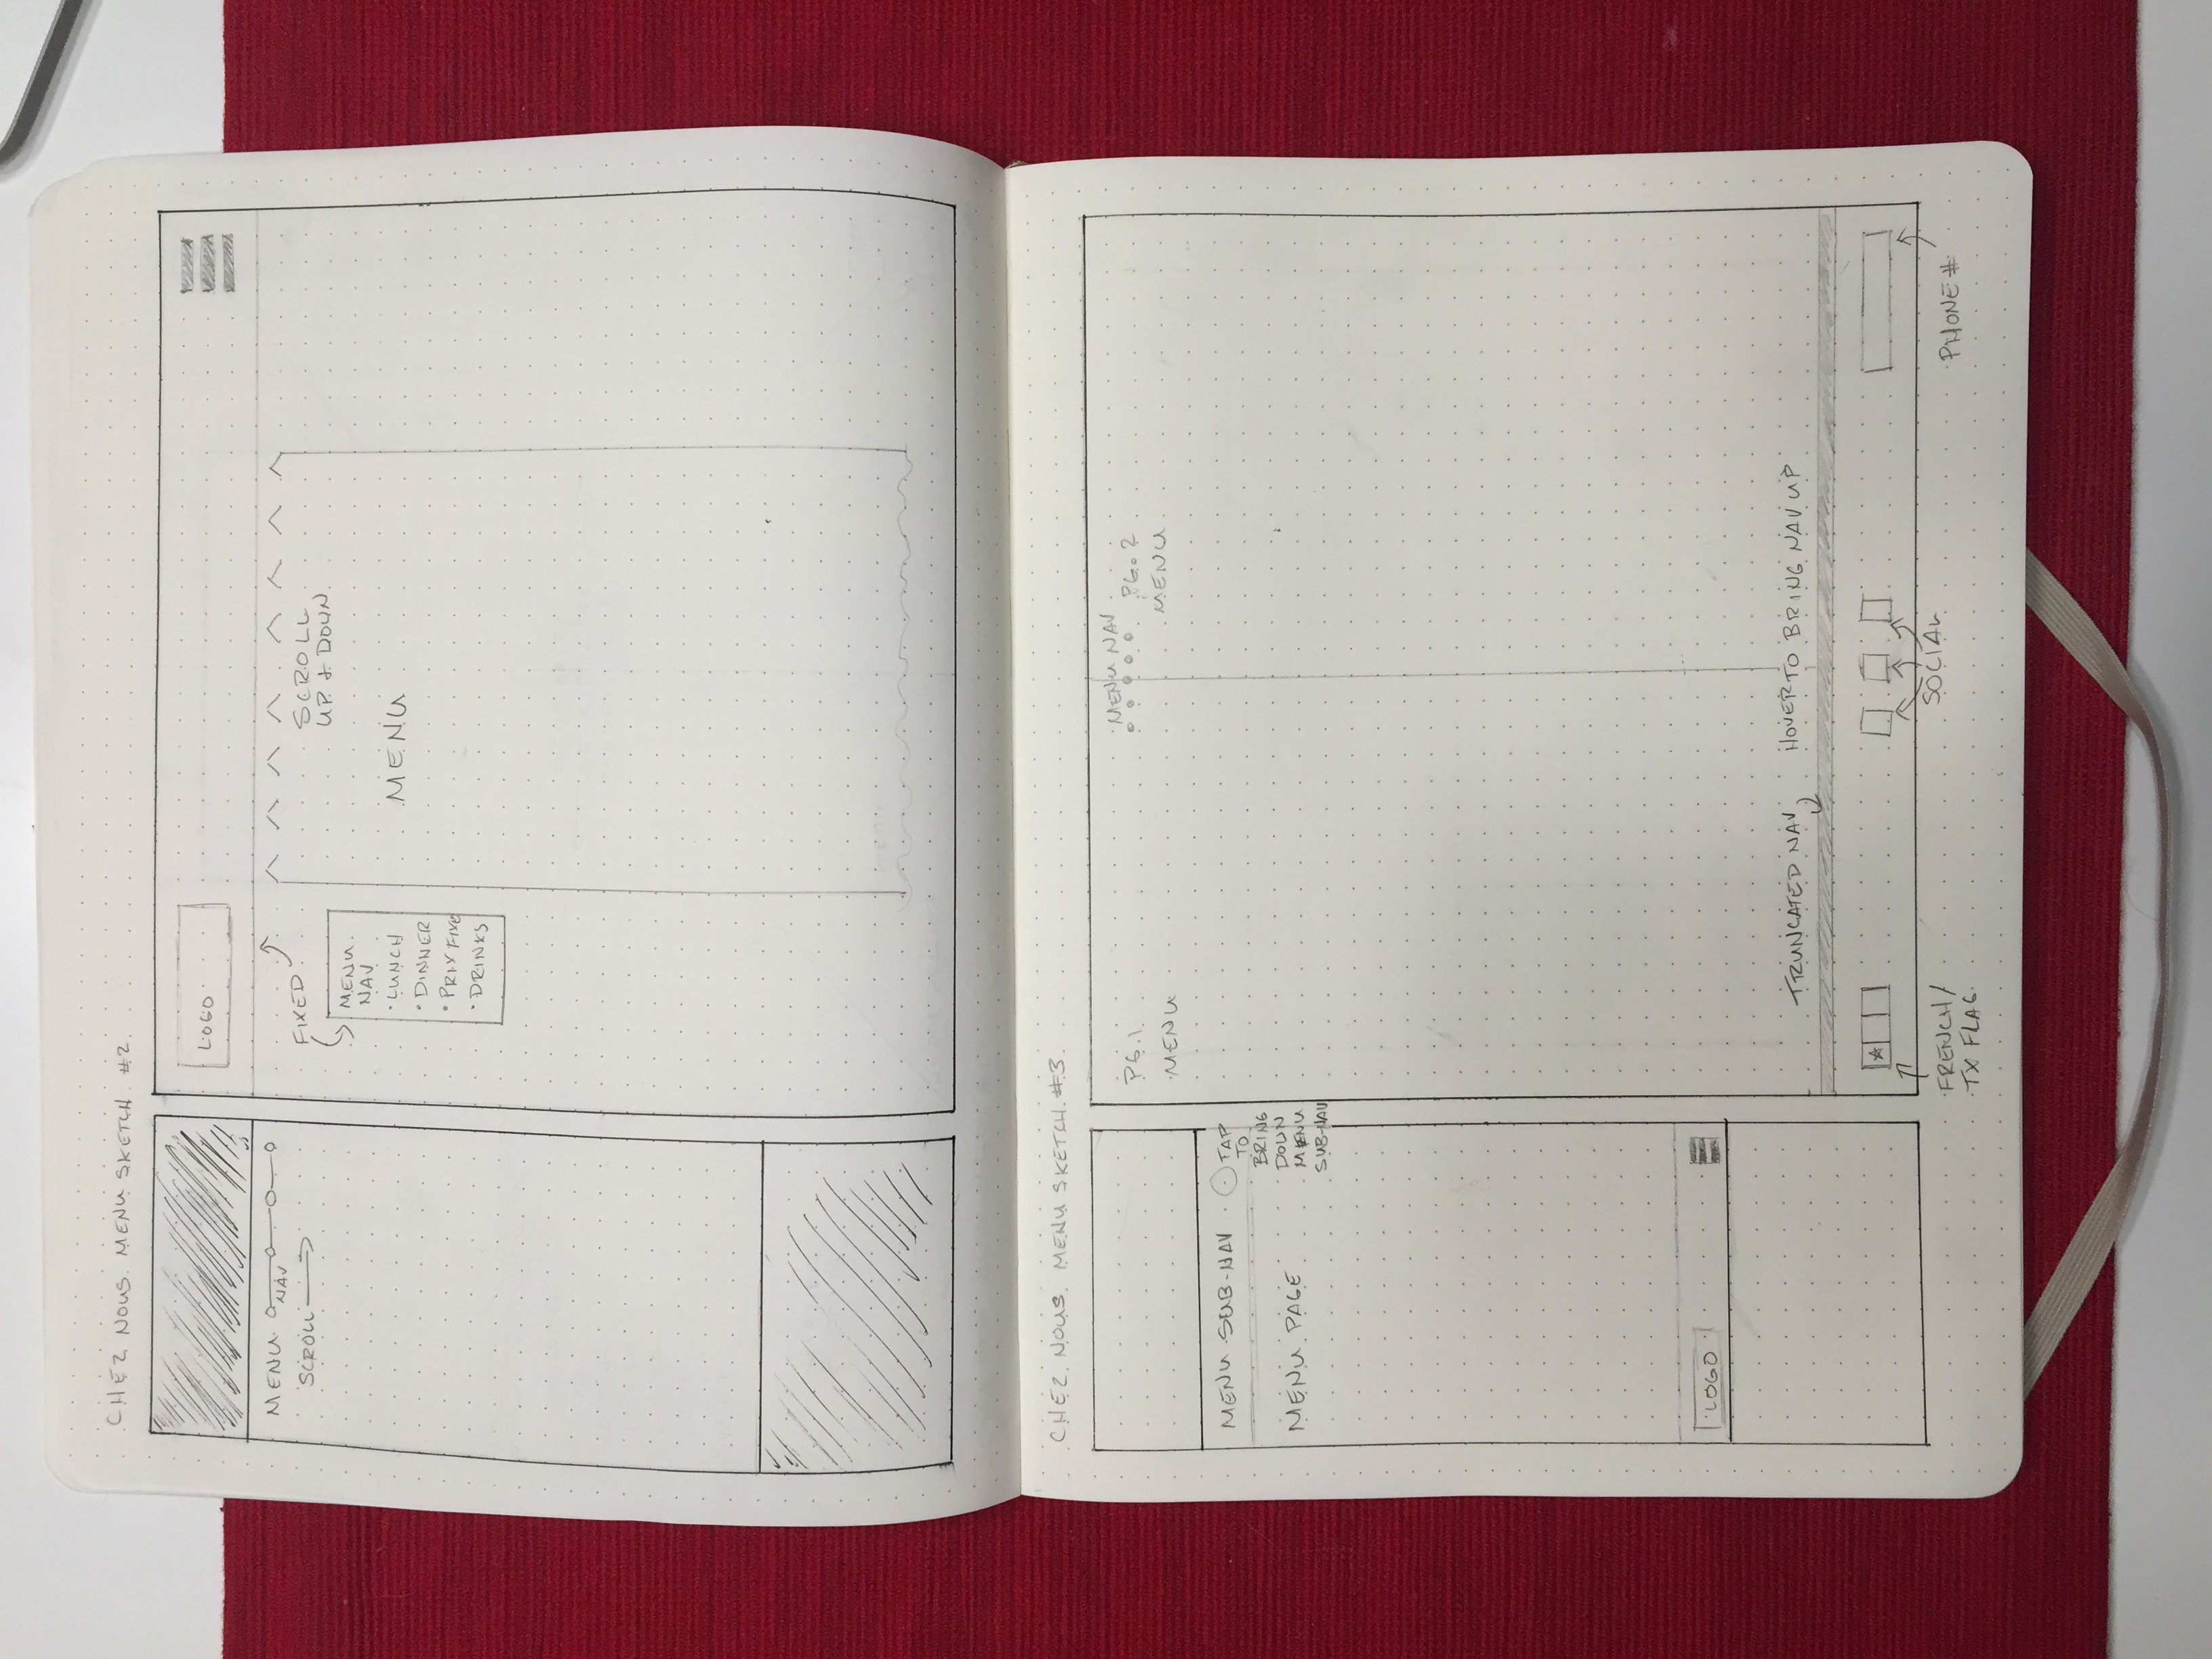 CHEZ NOUS MENU SKETCH #2
MENU
NAV
SCROLL
LOGO
FIXED
MENU
NAV
• LUNCH
• DINNER
• PRIX FIXE
• DRINKS
SCROLL
UP & DOWN
MENU
CHEZ NOUS MENU SKETCH #3
MENU SUB-NAV
TAP
TO
BRING
DOWN
MENU
SUB-NAV
MENU PAGE
LOGO
PG.1
MENU
MENU NAV
PG.2
MENU
TRUNCATED NAV
HOVER TO BRING NAV UP
FRENCH/
TX FLAG
SOCIAL
PHONE #